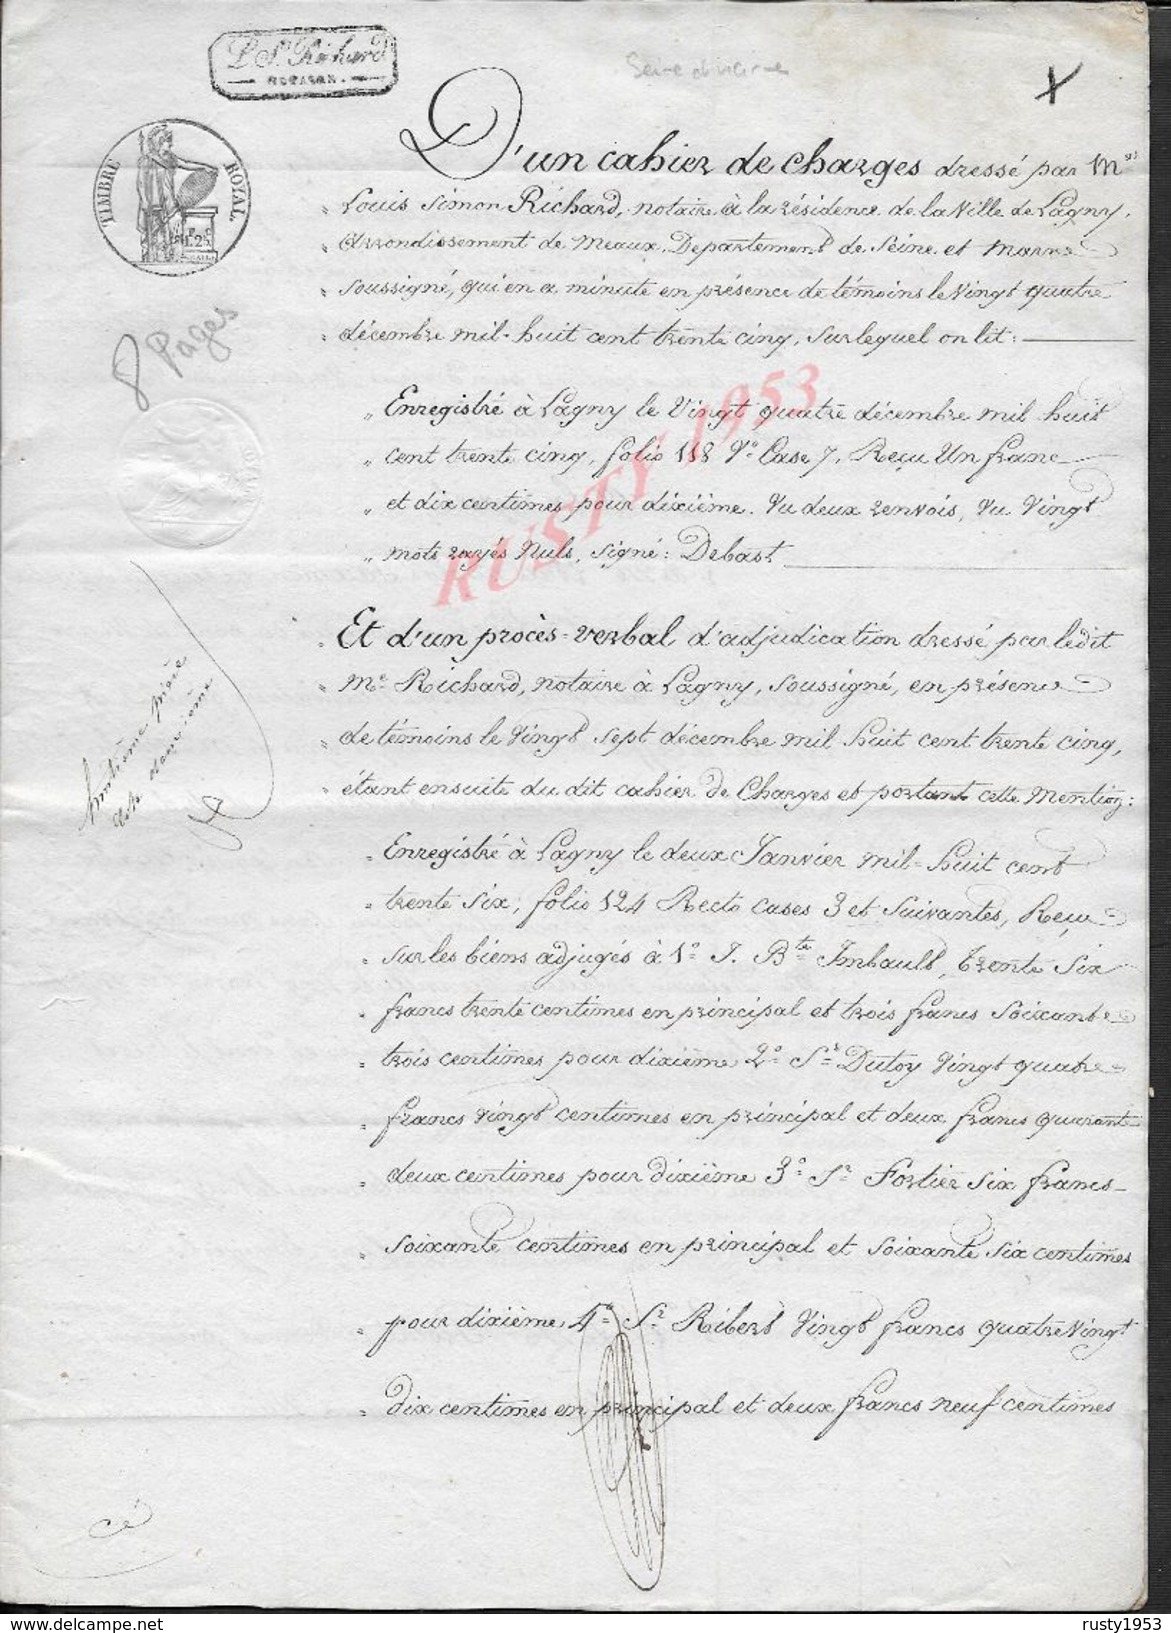 L. S. Richard
NOTAIRE.
Seine et marne
TIMBRE ROYAL
8 Pages
D'un cahier de charges dressé par Me
Louis Simon Richard, notaire à la résidence de la Ville de Lagny,
Arrondissement de Meaux, Département de Seine et Marne
soussigné, qui en a minute en présence de témoins le Vingt quatre
décembre mil-huit cent trente cinq, sur lequel on lit:
Enregistré à Lagny le Vingt quatre décembre mil huit
cent trente cinq, folio 118 Vo Case 7, Reçu Un franc
et dix centimes pour dixième. Vu deux renvois, Vu Vingt
mots rayés Nuls, signé: Debast
Et d'un procès=verbal d'adjudication dressé par ledit
Me Richard, notaire à Lagny, soussigné, en présence
de témoins le Vingt sept décembre mil huit cent trente cinq,
étant ensuite du dit cahier de Charges et portant cette Mention:
Enregistré à Lagny le deux Janvier mil-huit cent
trente six, folio 124 Recto cases 3 et suivantes, Reçu
sur les biens adjugés à 1o J. Bte Imbault, trente six
francs trente centimes en principal et trois francs soixante
trois centimes pour dixième 2o Sr Dutoy Vingt quatre
francs vingt centimes en principal et deux francs quarante
deux centimes pour dixième 3o Sr Fortier six francs
soixante centimes en principal et soixante six centimes
pour dixième, 4o Sr Ribert Vingt francs quatre vingt
dix centimes en principal et deux francs neuf centimes
huitième pièce
cote douzième
RUSTY 1953
rusty1953